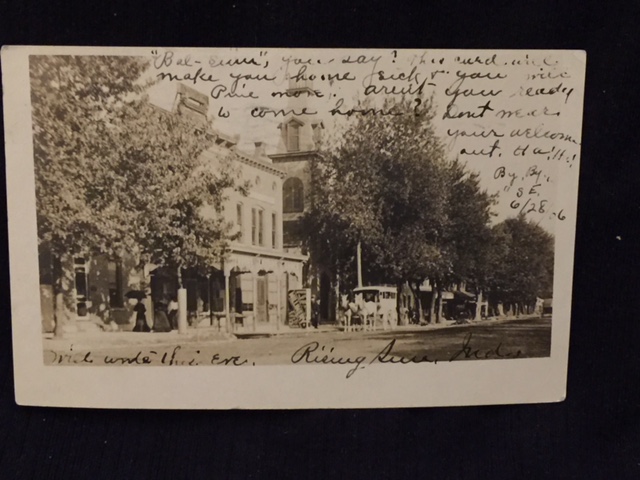 you say? this card will
make you home sick & you will
Pine more. arent you ready
to come home? dont wear
your welcome
out. Ha! Ha!
By. By.
"SE"
6/28/06
Will write this Eve. Rising Sun, Ind.